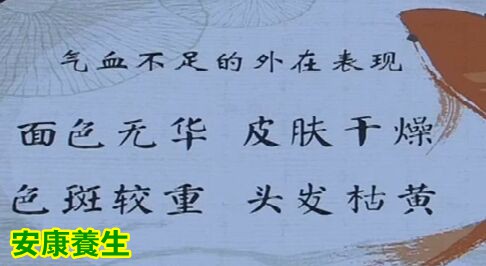 气血不足的外在表现
面色无华 皮肤干燥
色斑较重 头发枯黄
安康養生